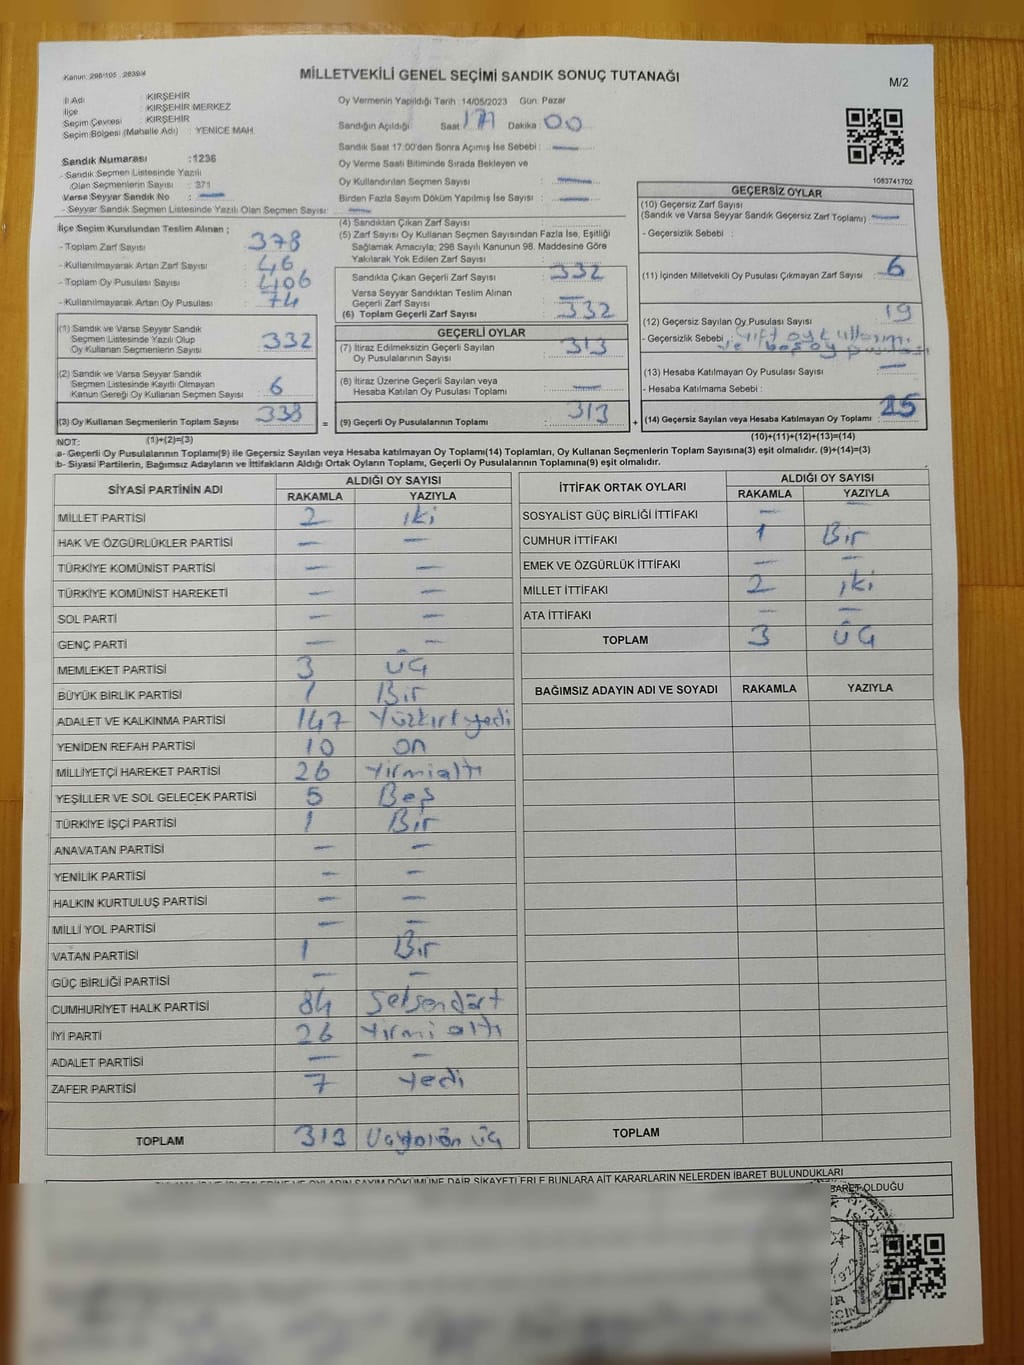 Kanun. 298/105 , 2839/4
MİLLETVEKİLİ GENEL SEÇİMİ SANDIK SONUÇ TUTANAĞI
M/2
İl Adı : KIRŞEHİR
İlçe : KIRŞEHİR MERKEZ
Seçim Çevresi : KIRŞEHİR
Seçim Bölgesi (Mahalle Adı) : YENİCE MAH.
Oy Vermenin Yapıldığı Tarih : 14/05/2023 Gün: Pazar
Sandığın Açıldığı Saat : 17 Dakika : 00
Sandık Saat 17:00'den Sonra Açmış İse Sebebi : —
Oy Verme Saati Bitiminde Sırada Bekleyen ve
Oy Kullandırılan Seçmen Sayısı : —
Birden Fazla Sayım Döküm Yapılmış İse Sayısı : —
1083741702
Sandık Numarası : 1236
- Sandık Seçmen Listesinde Yazılı
Olan Seçmenlerin Sayısı : 371
Varsa Seyyar Sandık No : —
- Seyyar Sandık Seçmen Listesinde Yazılı Olan Seçmen Sayısı : —
İlçe Seçim Kurulundan Teslim Alınan ;
- Toplam Zarf Sayısı : 378
- Kullanılmayarak Artan Zarf Sayısı : 46
- Toplam Oy Pusulası Sayısı : 406
- Kullanılmayarak Artan Oy Pusulası : 74
(1) Sandık ve Varsa Seyyar Sandık
Seçmen Listesinde Yazılı Olup
Oy Kullanan Seçmenlerin Sayısı : 332
(2) Sandık ve Varsa Seyyar Sandık
Seçmen Listesinde Kayıtlı Olmayan
Kanun Gereği Oy Kullanan Seçmen Sayısı : 6
(3) Oy Kullanan Seçmenlerin Toplam Sayısı : 338
(1)+(2)=(3)
(4) Sandıktan Çıkan Zarf Sayısı
(5) Zarf Sayısı Oy Kullanan Seçmen Sayısından Fazla İse, Eşitliği
Sağlamak Amacıyla; 298 Sayılı Kanunun 98. Maddesine Göre
Yakılarak Yok Edilen Zarf Sayısı :
Sandıkta Çıkan Geçerli Zarf Sayısı : 332
Varsa Seyyar Sandıktan Teslim Alınan
Geçerli Zarf Sayısı : —
(6) Toplam Geçerli Zarf Sayısı : 332
GEÇERLİ OYLAR
(7) İtiraz Edilmeksizin Geçerli Sayılan
Oy Pusulalarının Sayısı : 313
(8) İtiraz Üzerine Geçerli Sayılan veya
Hesaba Katılan Oy Pusulası Toplamı : —
= (9) Geçerli Oy Pusulalarının Toplamı : 313
GEÇERSİZ OYLAR
(10) Geçersiz Zarf Sayısı
(Sandık ve Varsa Seyyar Sandık Geçersiz Zarf Toplamı) : —
- Geçersizlik Sebebi :
(11) İçinden Milletvekili Oy Pusulası Çıkmayan Zarf Sayısı : 6
(12) Geçersiz Sayılan Oy Pusulası Sayısı : 19
- Geçersizlik Sebebi : çift oy kullanımı
ve boş oy pusulası
(13) Hesaba Katılmayan Oy Pusulası Sayısı : —
- Hesaba Katılmama Sebebi :
+ (14) Geçersiz Sayılan veya Hesaba Katılmayan Oy Toplamı : 25
(10)+(11)+(12)+(13)=(14)
NOT:
a- Geçerli Oy Pusulalarının Toplamı(9) ile Geçersiz Sayılan veya Hesaba katılmayan Oy Toplamı(14) Toplamları, Oy Kullanan Seçmenlerin Toplam Sayısına(3) eşit olmalıdır. (9)+(14)=(3)
b- Siyasi Partilerin, Bağımsız Adayların ve İttifakların Aldığı Ortak Oyların Toplamı, Geçerli Oy Pusulalarının Toplamına(9) eşit olmalıdır.
SİYASİ PARTİNİN ADI ALDIĞI OY SAYISI
RAKAMLA YAZIYLA
MİLLET PARTİSİ 2 iki
HAK VE ÖZGÜRLÜKLER PARTİSİ — —
TÜRKİYE KOMÜNİST PARTİSİ — —
TÜRKİYE KOMÜNİST HAREKETİ — —
SOL PARTİ — —
GENÇ PARTİ — —
MEMLEKET PARTİSİ 3 ÜÇ
BÜYÜK BİRLİK PARTİSİ 1 Bir
ADALET VE KALKINMA PARTİSİ 147 Yüzkırkyedi
YENİDEN REFAH PARTİSİ 10 on
MİLLİYETÇİ HAREKET PARTİSİ 26 Yirmialtı
YEŞİLLER VE SOL GELECEK PARTİSİ 5 Beş
TÜRKİYE İŞÇİ PARTİSİ 1 Bir
ANAVATAN PARTİSİ — —
YENİLİK PARTİSİ — —
HALKIN KURTULUŞ PARTİSİ — —
MİLLİ YOL PARTİSİ — —
VATAN PARTİSİ 1 Bir
GÜÇ BİRLİĞİ PARTİSİ — —
CUMHURİYET HALK PARTİSİ 84 Seksendört
İYİ PARTİ 26 Yirmi altı
ADALET PARTİSİ — —
ZAFER PARTİSİ 7 Yedi
TOPLAM 313
İTTİFAK ORTAK OYLARI ALDIĞI OY SAYISI
RAKAMLA YAZIYLA
SOSYALİST GÜÇ BİRLİĞİ İTTİFAKI — —
CUMHUR İTTİFAKI 1 Bir
EMEK VE ÖZGÜRLÜK İTTİFAKI — —
MİLLET İTTİFAKI 2 iki
ATA İTTİFAKI — —
TOPLAM 3 ÜÇ
BAĞIMSIZ ADAYIN ADI VE SOYADI RAKAMLA YAZIYLA
TOPLAM
DAİR ŞİKAYETLERLE BUNLARA AİT KARARLARIN NELERDEN İBARET BULUNDUKLARI